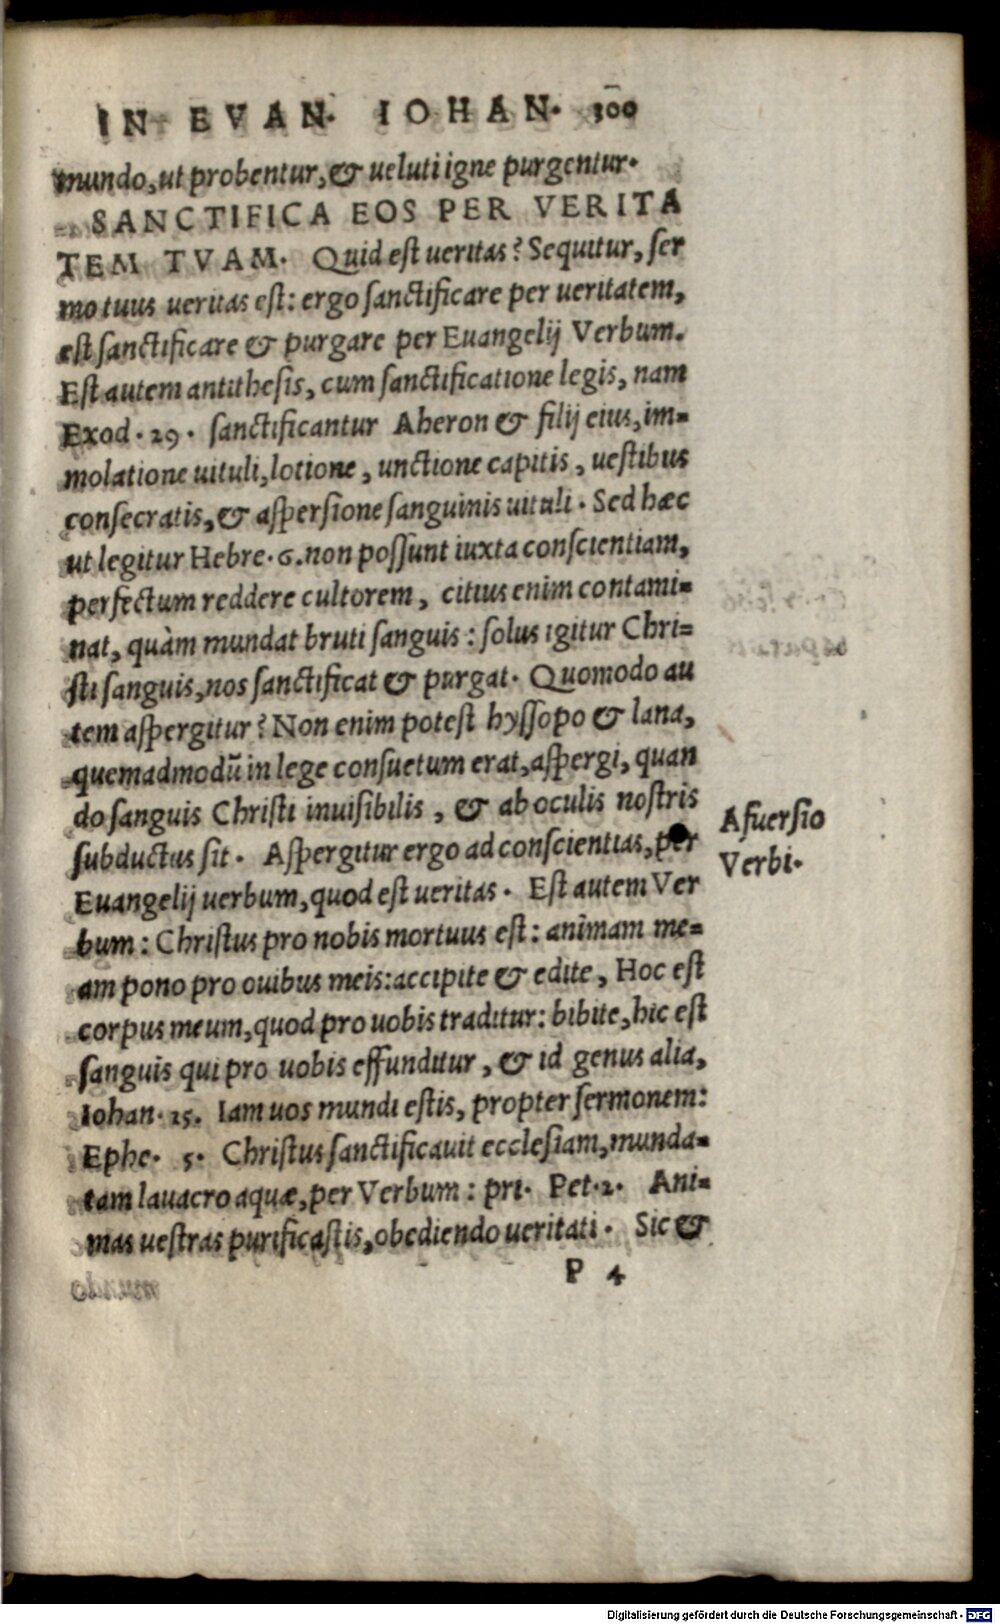 IN EVAN. IOHAN. 300
mundo, ut probentur, & ueluti igne purgentur.
SANCTIFICA EOS PER VERITA
TEM TVAM. Quid est ueritas? Sequitur, ser
mo tuus ueritas est: ergo sanctificare per ueritatem,
est sanctificare & purgare per Euangelij Verbum.
Est autem antithesis, cum sanctificatione legis, nam
Exod. 29. sanctificantur Aheron & filij eius, im=
molatione uituli, lotione, unctione capitis, uestibus
consecratis, & aspersione sanguinis uituli. Sed hæc
ut legitur Hebre. 6. non possunt iuxta conscientiam,
perfectum reddere cultorem, citius enim contami=
nat, quàm mundat bruti sanguis: solus igitur Chri=
sti sanguis, nos sanctificat & purgat. Quomodo au
tem aspergitur? Non enim potest hyssopo & lana,
quemadmodũ in lege consuetum erat, aspergi, quan
do sanguis Christi inuisibilis, & ab oculis nostris
subductus sit. Aspergitur ergo ad conscientias, per
Euangelij uerbum, quod est ueritas. Est autem Ver
bum: Christus pro nobis mortuus est: animam me=
am pono pro ouibus meis: accipite & edite, Hoc est
corpus meum, quod pro uobis traditur: bibite, hic est
sanguis qui pro uobis effunditur, & id genus alia,
Iohan. 15. Iam uos mundi estis, propter sermonem:
Ephe. 5. Christus sanctificauit ecclesiam, munda=
tam lauacro aquæ, per Verbum: pri. Pet. 2. Ani=
mas uestras purificastis, obediendo ueritati. Sic &
P 4
Asuersio
Verbi.
Digitalisierung gefördert durch die Deutsche Forschungsgemeinschaft - DFG